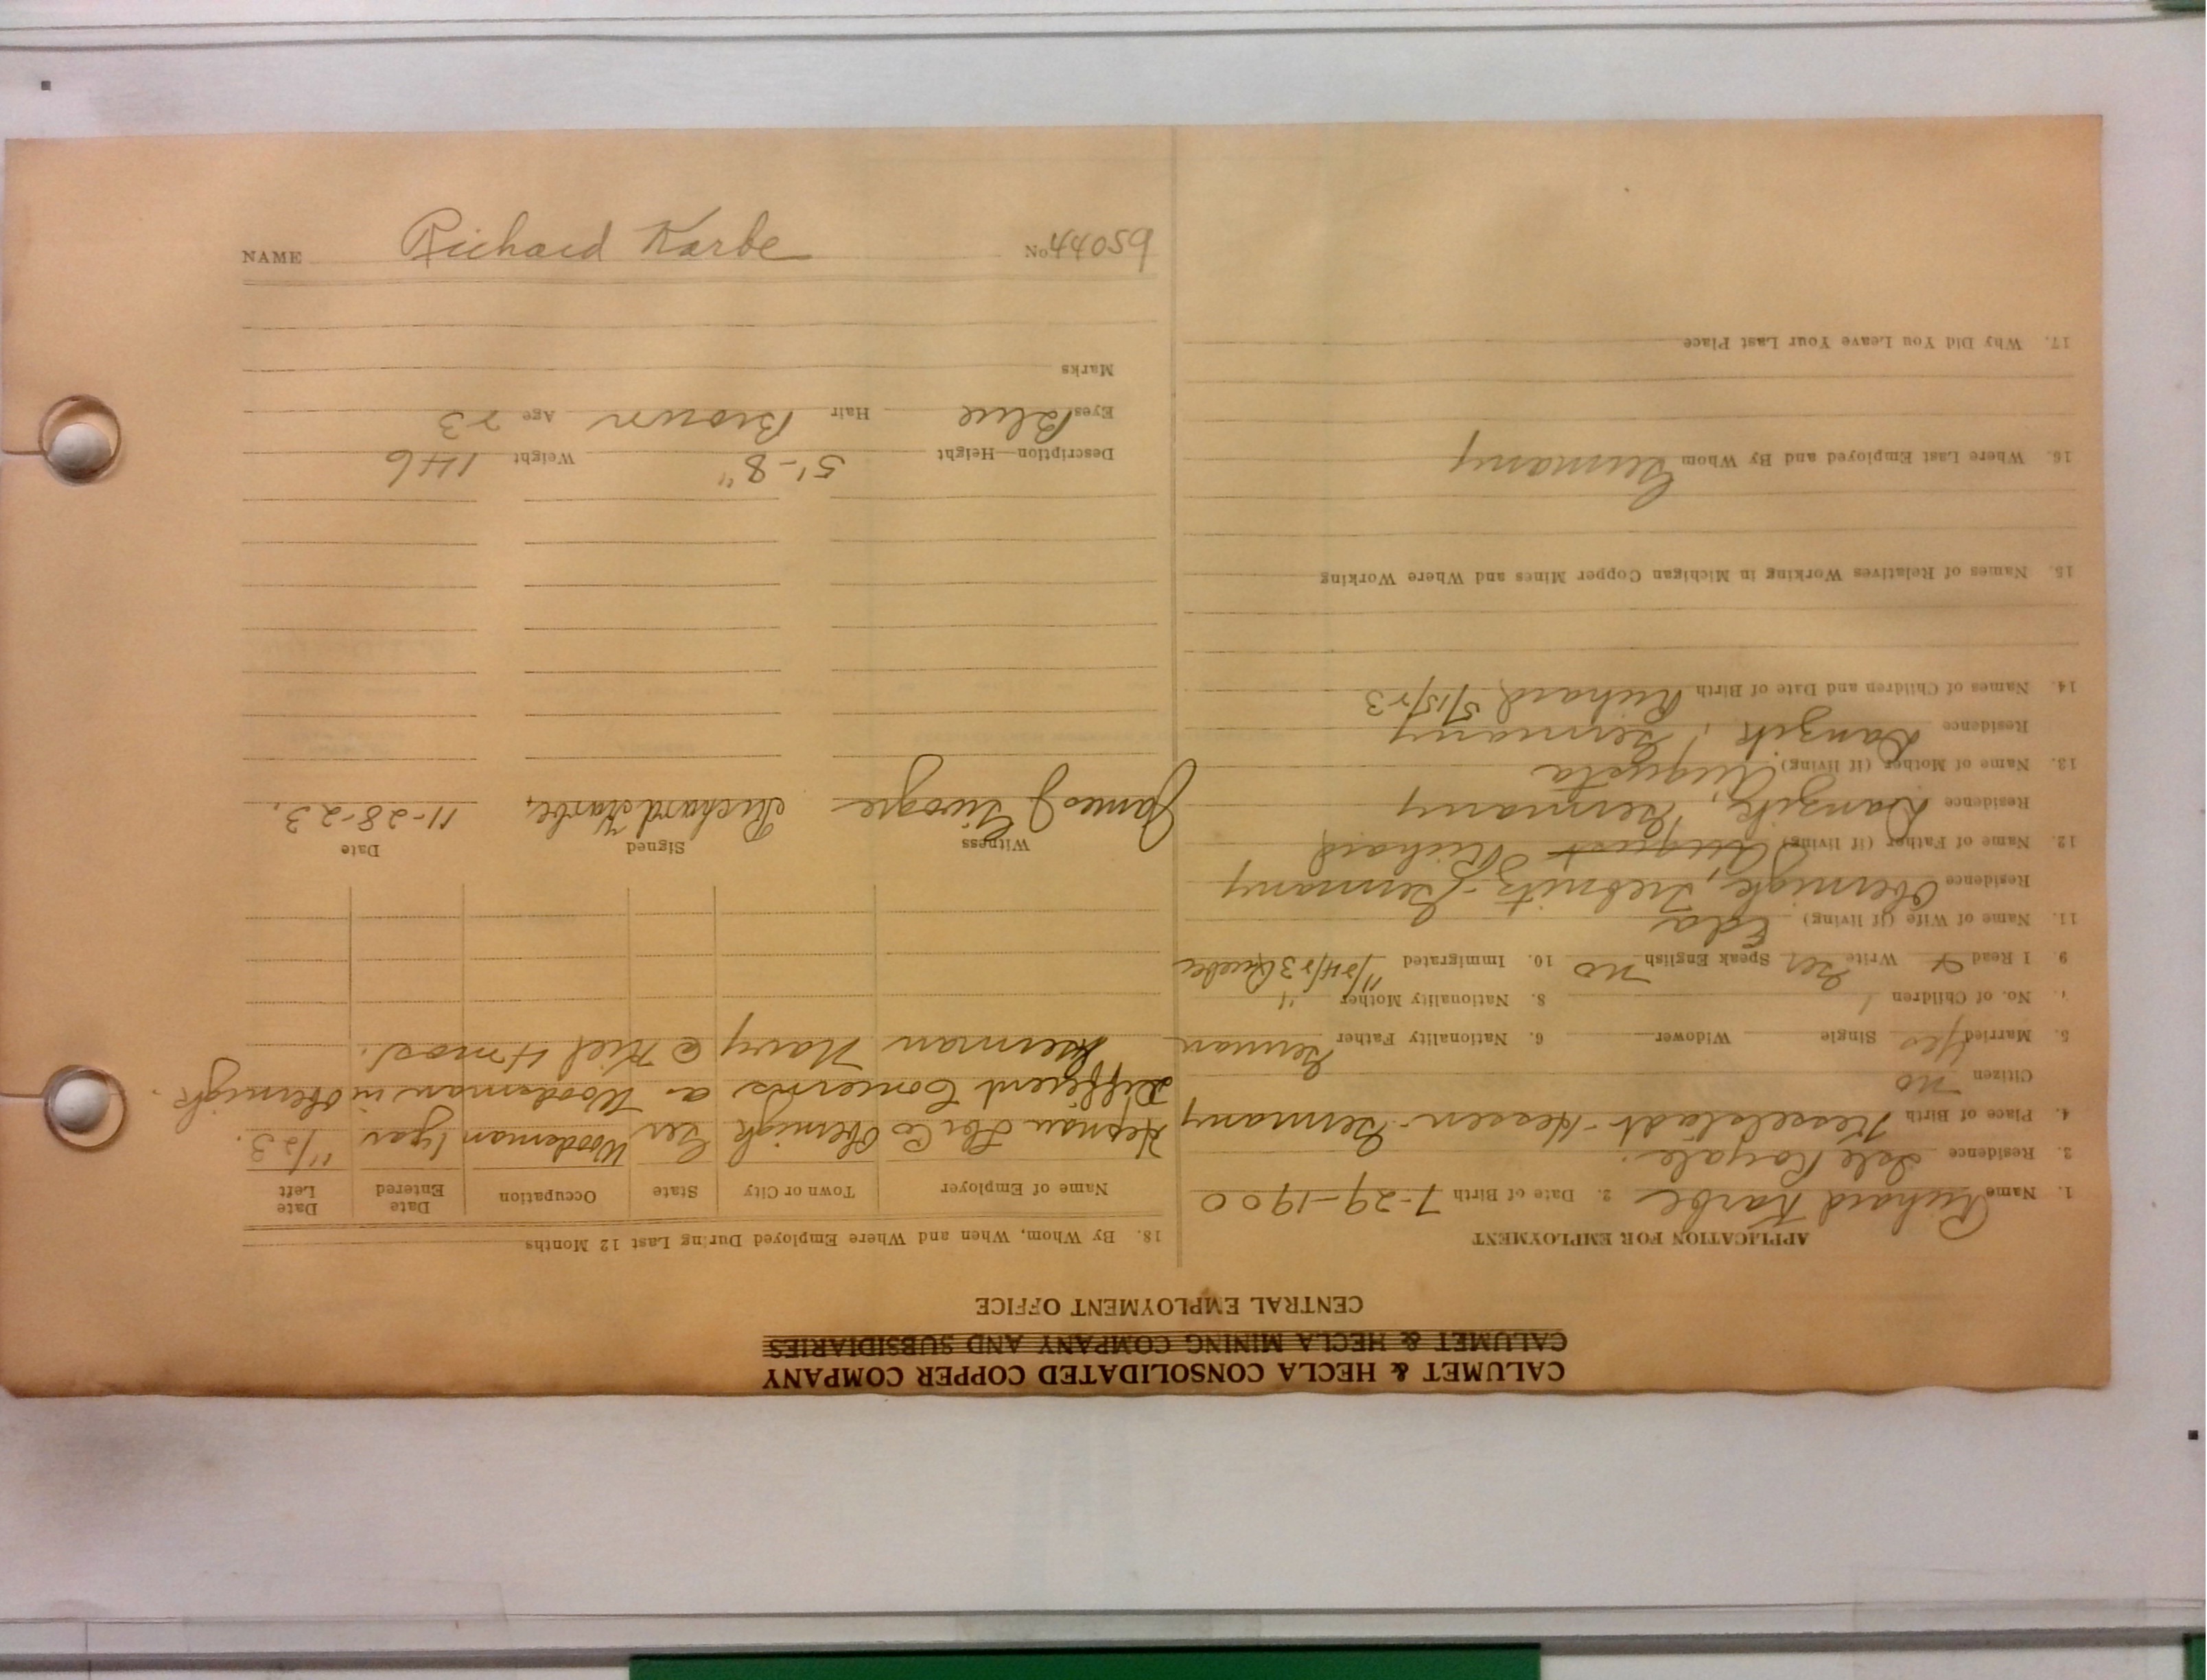 CALUMET & HECLA CONSOLIDATED COPPER COMPANY
CALUMET & HECLA MINING COMPANY AND SUBSIDIARIES
CENTRAL EMPLOYMENT OFFICE
APPLICATION FOR EMPLOYMENT
1. Name Richard Karbe 2. Date of Birth 7-29-1900
3. Residence Isle Royale.
4. Place of Birth Kesselstadt-Hessen-Germany
Citizen no
5. Married Yes Single Widower 6. Nationality Father German
7. No. of Children 1 8. Nationality Mother "
9. I Read & Write Ger Speak English no 10. Immigrated 11/24/23 Quebec
11. Name of Wife (if living) Eda
Residence Obernigk, Trebnitz-Germany
12. Name of Father (if living) August Richard
Residence Danzik, Germany
13. Name of Mother (if living) Augusta
Residence Danzik, Germany
14. Names of Children and Date of Birth Richard, 5/15/23
15. Names of Relatives Working in Michigan Copper Mines and Where Working
16. Where Last Employed and By Whom Germany
17. Why Did You Leave Your Last Place
18. By Whom, When and Where Employed During Last 12 Months
Name of Employer Town or City State Occupation Date Entered Date Left
Lbr Co Obernigk Ger Woodsman 1 year 11/23.
Different Concerns as Woodsman in Obernigk.
German Navy @ Kiel 4 mos.
Witness Signed Date
James J Richard Karbe, 11-28-23.
Description—Height 5'-8" Weight 146
Eyes Blue Hair Brown Age 23
Marks
NAME Richard Karbe No. 44059